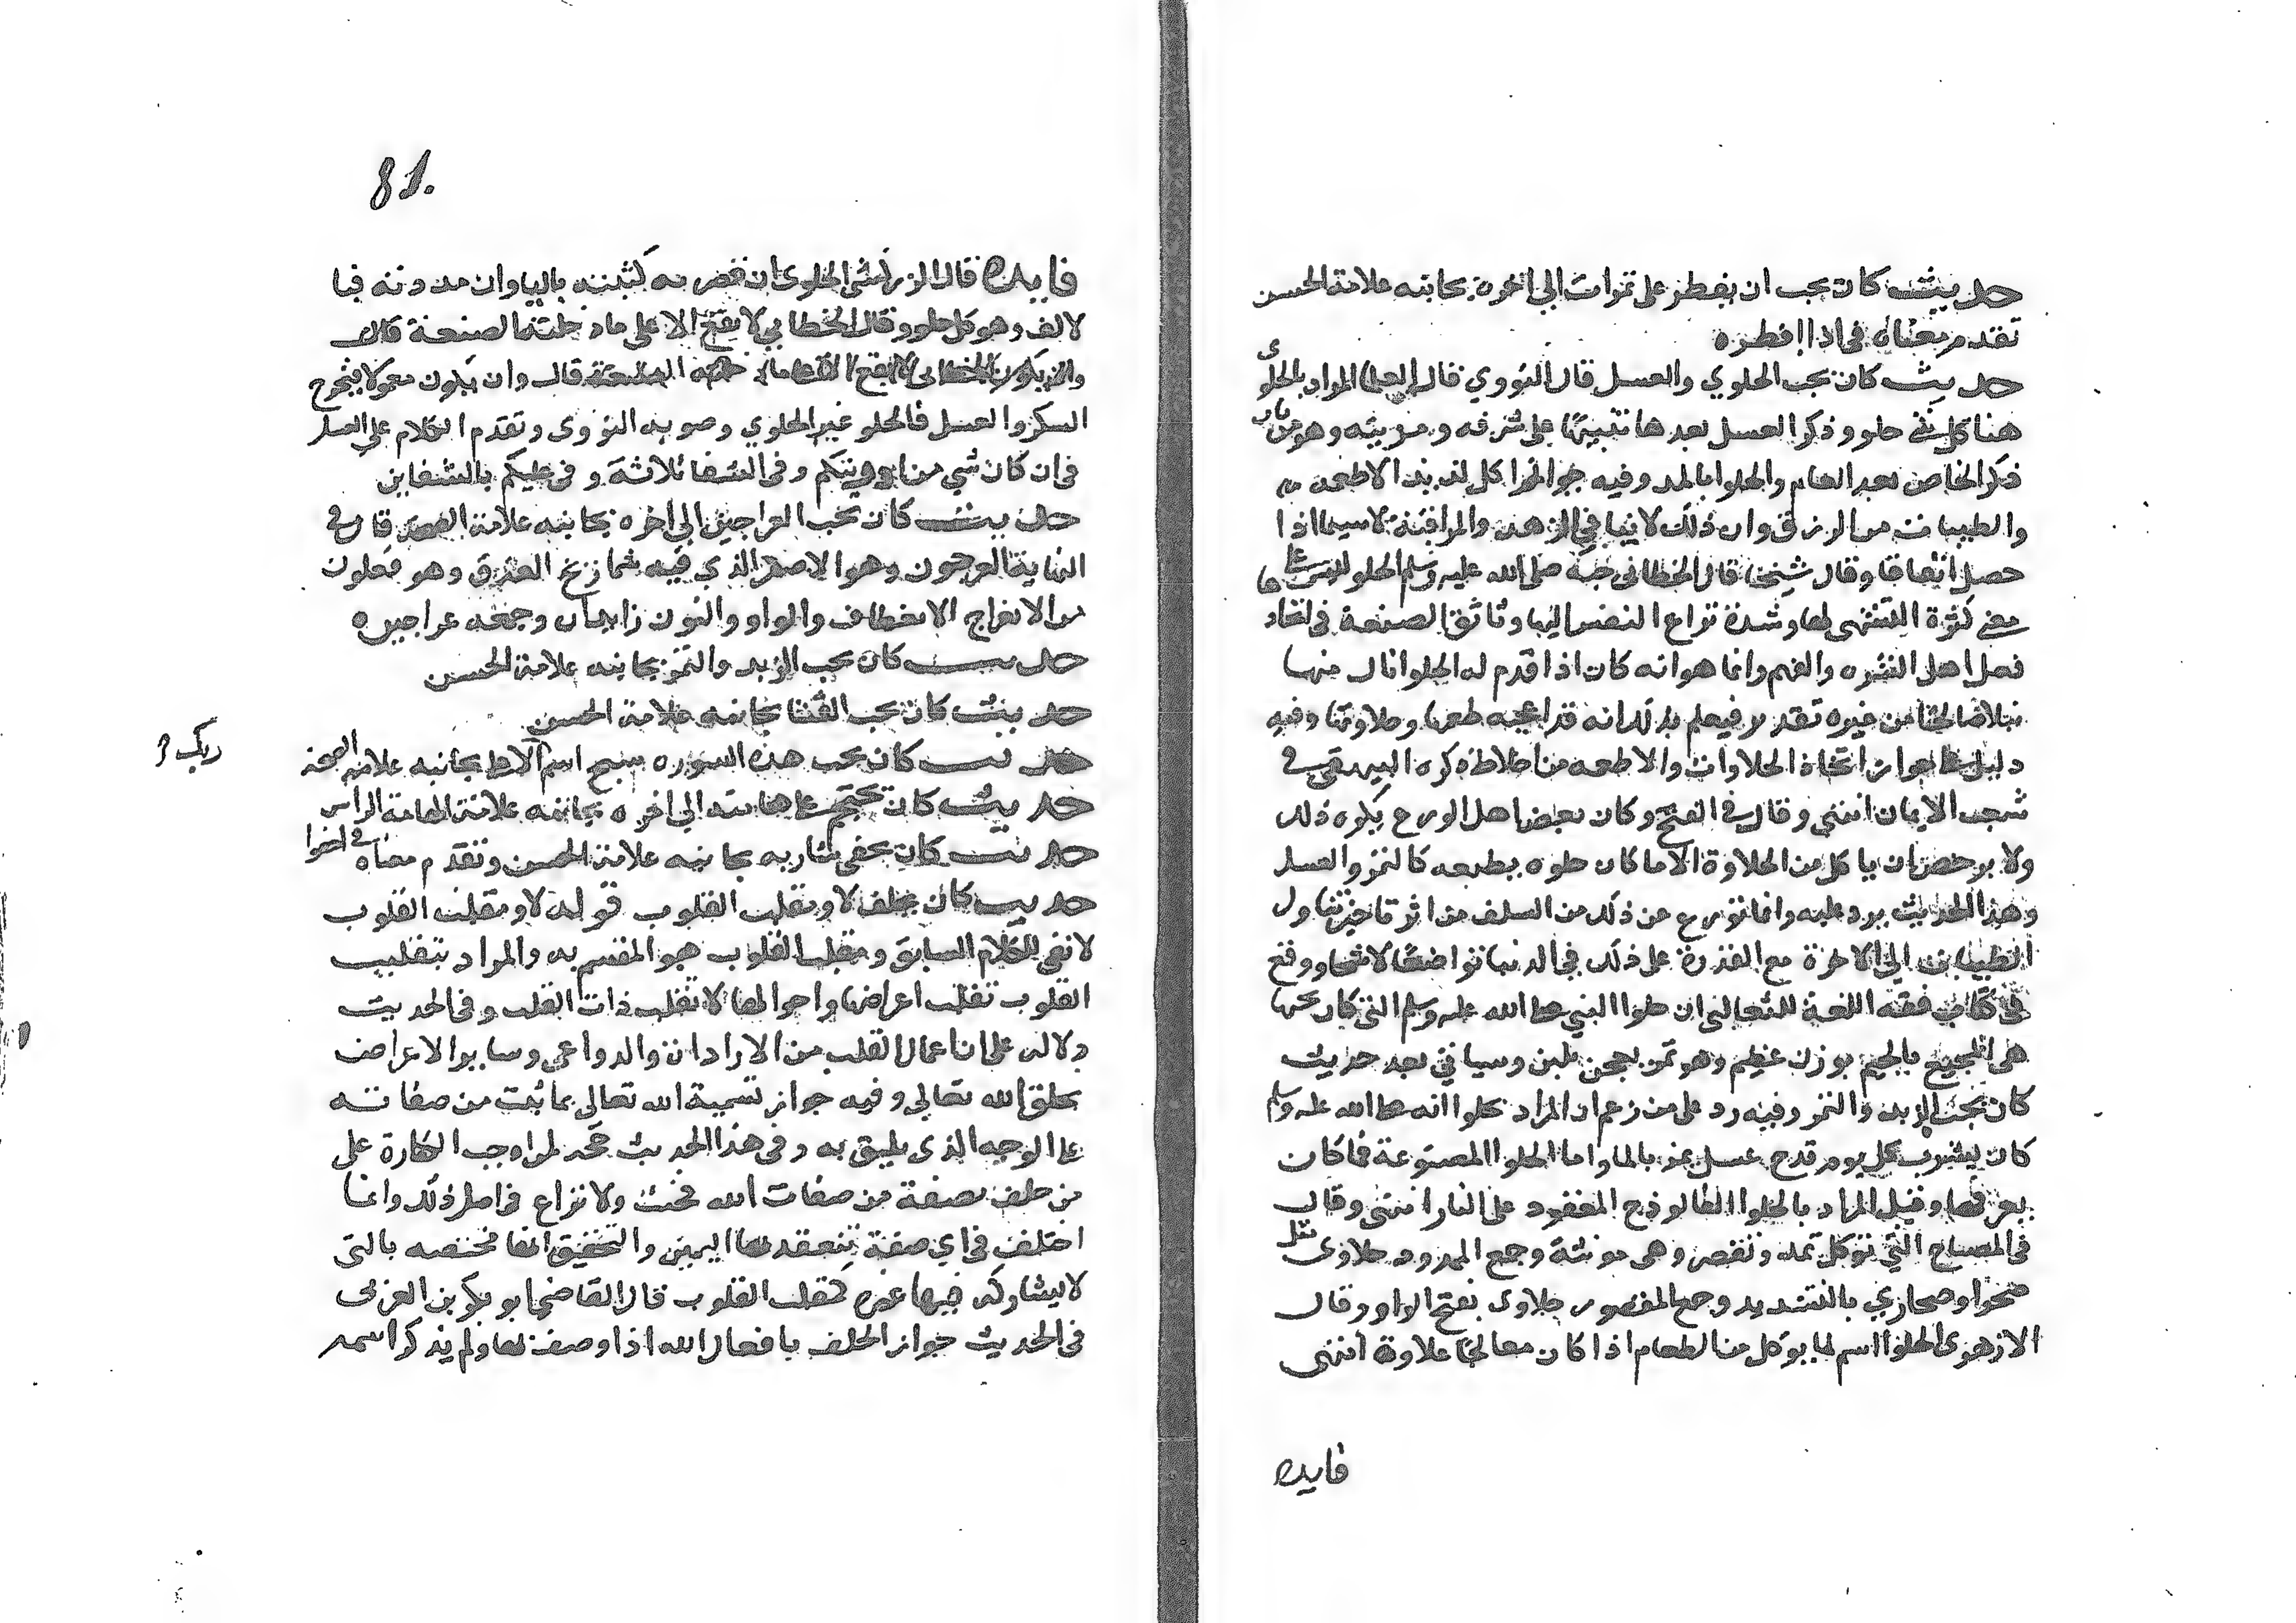 حديث كان يحب ان يفطر على تمرات الي اخره بجانبه علامة الحسن
تقدم معناه في اذا افطره
حديث كان يحب الحلوي والعسل قال النووي قال العلما المراد بالحلوى
هنا كل شي حلو وذكر العسل بعدها تنبيها على شرفه ومزيته وهو من باب
ذكر الخاص بعد العام والحلوا بالمد وفيه جواز اكل لذيذ الاطعمه
والطيبات من الرزق وان ذلك لا ينافي الزهد والمراقبة لاسيما اذا
حصل اتفاقا وقال شيخنا قال الخطابي حبه صلى الله عليه وسلم الحلو ليس على
معني كثرة التشهي لها وشدة نزاع النفس اليها وتاثق الصنعة في اتخاد
فعل اهل الشره والنهم وانما هو انه كان اذا قدم له الحلوا نال منها
نيلا صالحا من غيره تقدير فيعلم بذلك انه قد اعجبه طعمها وحلاوتها وفيه
دليل على جواز اتخاذ الحلاوات والاطعمه من اخلاط ذكره البيهقي في
شعب الايمان انتهي وقال في الفتح وكان بعض اهل الورع يكره ذلك
ولا يرخص ان ياكل من الحلاوة الا ما كان حلوه بطبعه كالتمر والعسل
وهذا الحديث يرد عليه وانما تورع عن ذلك من السلف من اثر تاخير تناول
الطيبات الي الاخرة مع القدرة على ذلك في الدنيا تواضعا لا شحا ووقع
في كتاب فقه اللغة للثعالبي ان حلوا النبي صلى الله عليه وسلم التي كان يحبها
هي المجيع بالجيم بوزن عظيم وهو تمر يعجن بلبن وسياتي بعد حديث
كان يحب الزبد والتمر وفيه رد على من زعم ان المراد بحلوا انه صلى الله عليه وسلم
كان يشرب كل يوم قدح عسل يمزج بالماء واما الحلوا المصنوعة فما كان
يعرفها وقيل المراد بالحلوا الفالوذج المعقود على النار انتهي وقال
في المصباح التي توكل تمد وتقصر وهي مونثة وجمع الممدود حلاوى مثل
صحرا وصحاري بالتشديد وجمع المقصور حلاوى بفتح الواو وقال
الازهري الحلوا اسم لما يوكل من الطعام اذا كان معالجا بحلاوة انتهى
فايده
81.
فايده قال الزركشي الحلوى ان قصرته كتبته باليا وان مددته فبا
لالف وهو كل حلو وقال الخطابي لا يقع الا على ما دخلته الصنعة قال
قال وان يكون معمولا فيخرج
السكر والعسل فالحلو غير الحلوي وصوبه النووى وتقدم الكلام على العسل
في ان كان شي من ادويتكم وفي الشفا ثلاثة وفي عليكم بالشفاين
حديث كان يحب العراجين الي اخره بجانبه علامة الصحه قال في
النهاية العرجون وهو الاصفر الذي فيه شماريخ العذق وهو فعلون
من الانعراج الانعطاف والواو والنون زايدتان وجمعه عراجين
حديث كان يحب الزبد والتمر بجانبه علامة الحسن
حديث كان يحب القثا بجانبه علامة الحسن
حديث كان يحب هذه السوره سبح اسم ربك الاعلى بجانبه علامه الصحة
حديث كان يحتجم على هامته الي اخره بجانبه علامة الهامة الراس
حديث كان يحفى شاربه بجانبه علامة الحسن وتقدم معناه في احفوا
حديث كان يحلف لا ومقلب القلوب قوله لا ومقلب القلوب
لا نفي للكلام السابق ومقلب القلوب هو المقسم به والمراد بتقليب
القلوب تقلب اعراضها واحوالها لا تقلب ذات القلب وفي الحديث
دلاله على ان اعمال القلب من الارادات والدواعي وساير الاعراض
بخلق الله تعالي وفيه جواز تسمية الله تعالى بما ثبت من صفاته
على الوجه الذى يليق به وفي هذا الحديث حجة لمن اوجب الكفارة على
من حلف بصفة من صفات الله فحنث ولا نزاع في اصل ذلك وانما
اختلف في اي صفة تنعقد بها اليمين والتحقيق انها مختصه بالتى
لا يشاركه فيها غيره كمقلب القلوب قال القاضي ابو بكر بن العربى
في الحديث جواز الحلف بافعال الله اذا وصف بها ولم يذكر اسمه